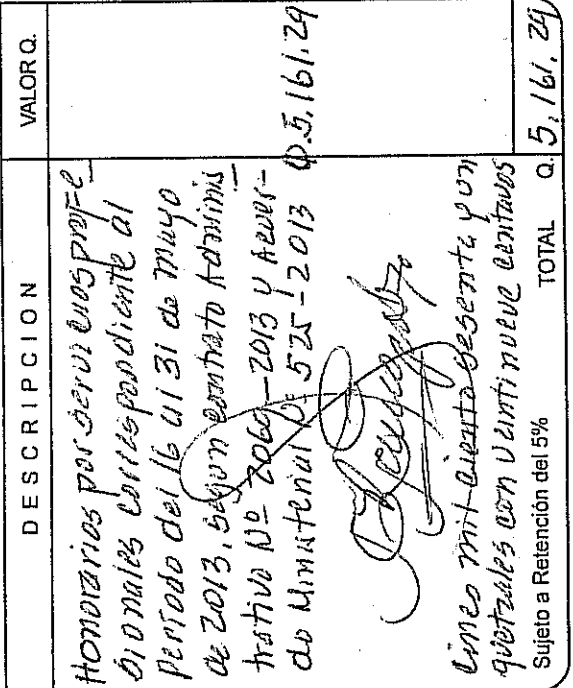 DESCRIPCION VALOR Q.
Honorarios por servicios profe_
sionales correspondiente al
periodo del 16 al 31 de mayo
de 2013, según contrato Adminis_
trativo Nº 2060-2013 y Acuer-
do Ministerial Nº 525-2013 Q.5,161.29
Cinco mil ciento sesenta y un
quetzales con veintinueve centavos
Sujeto a Retención del 5% TOTAL Q. 5,161.29